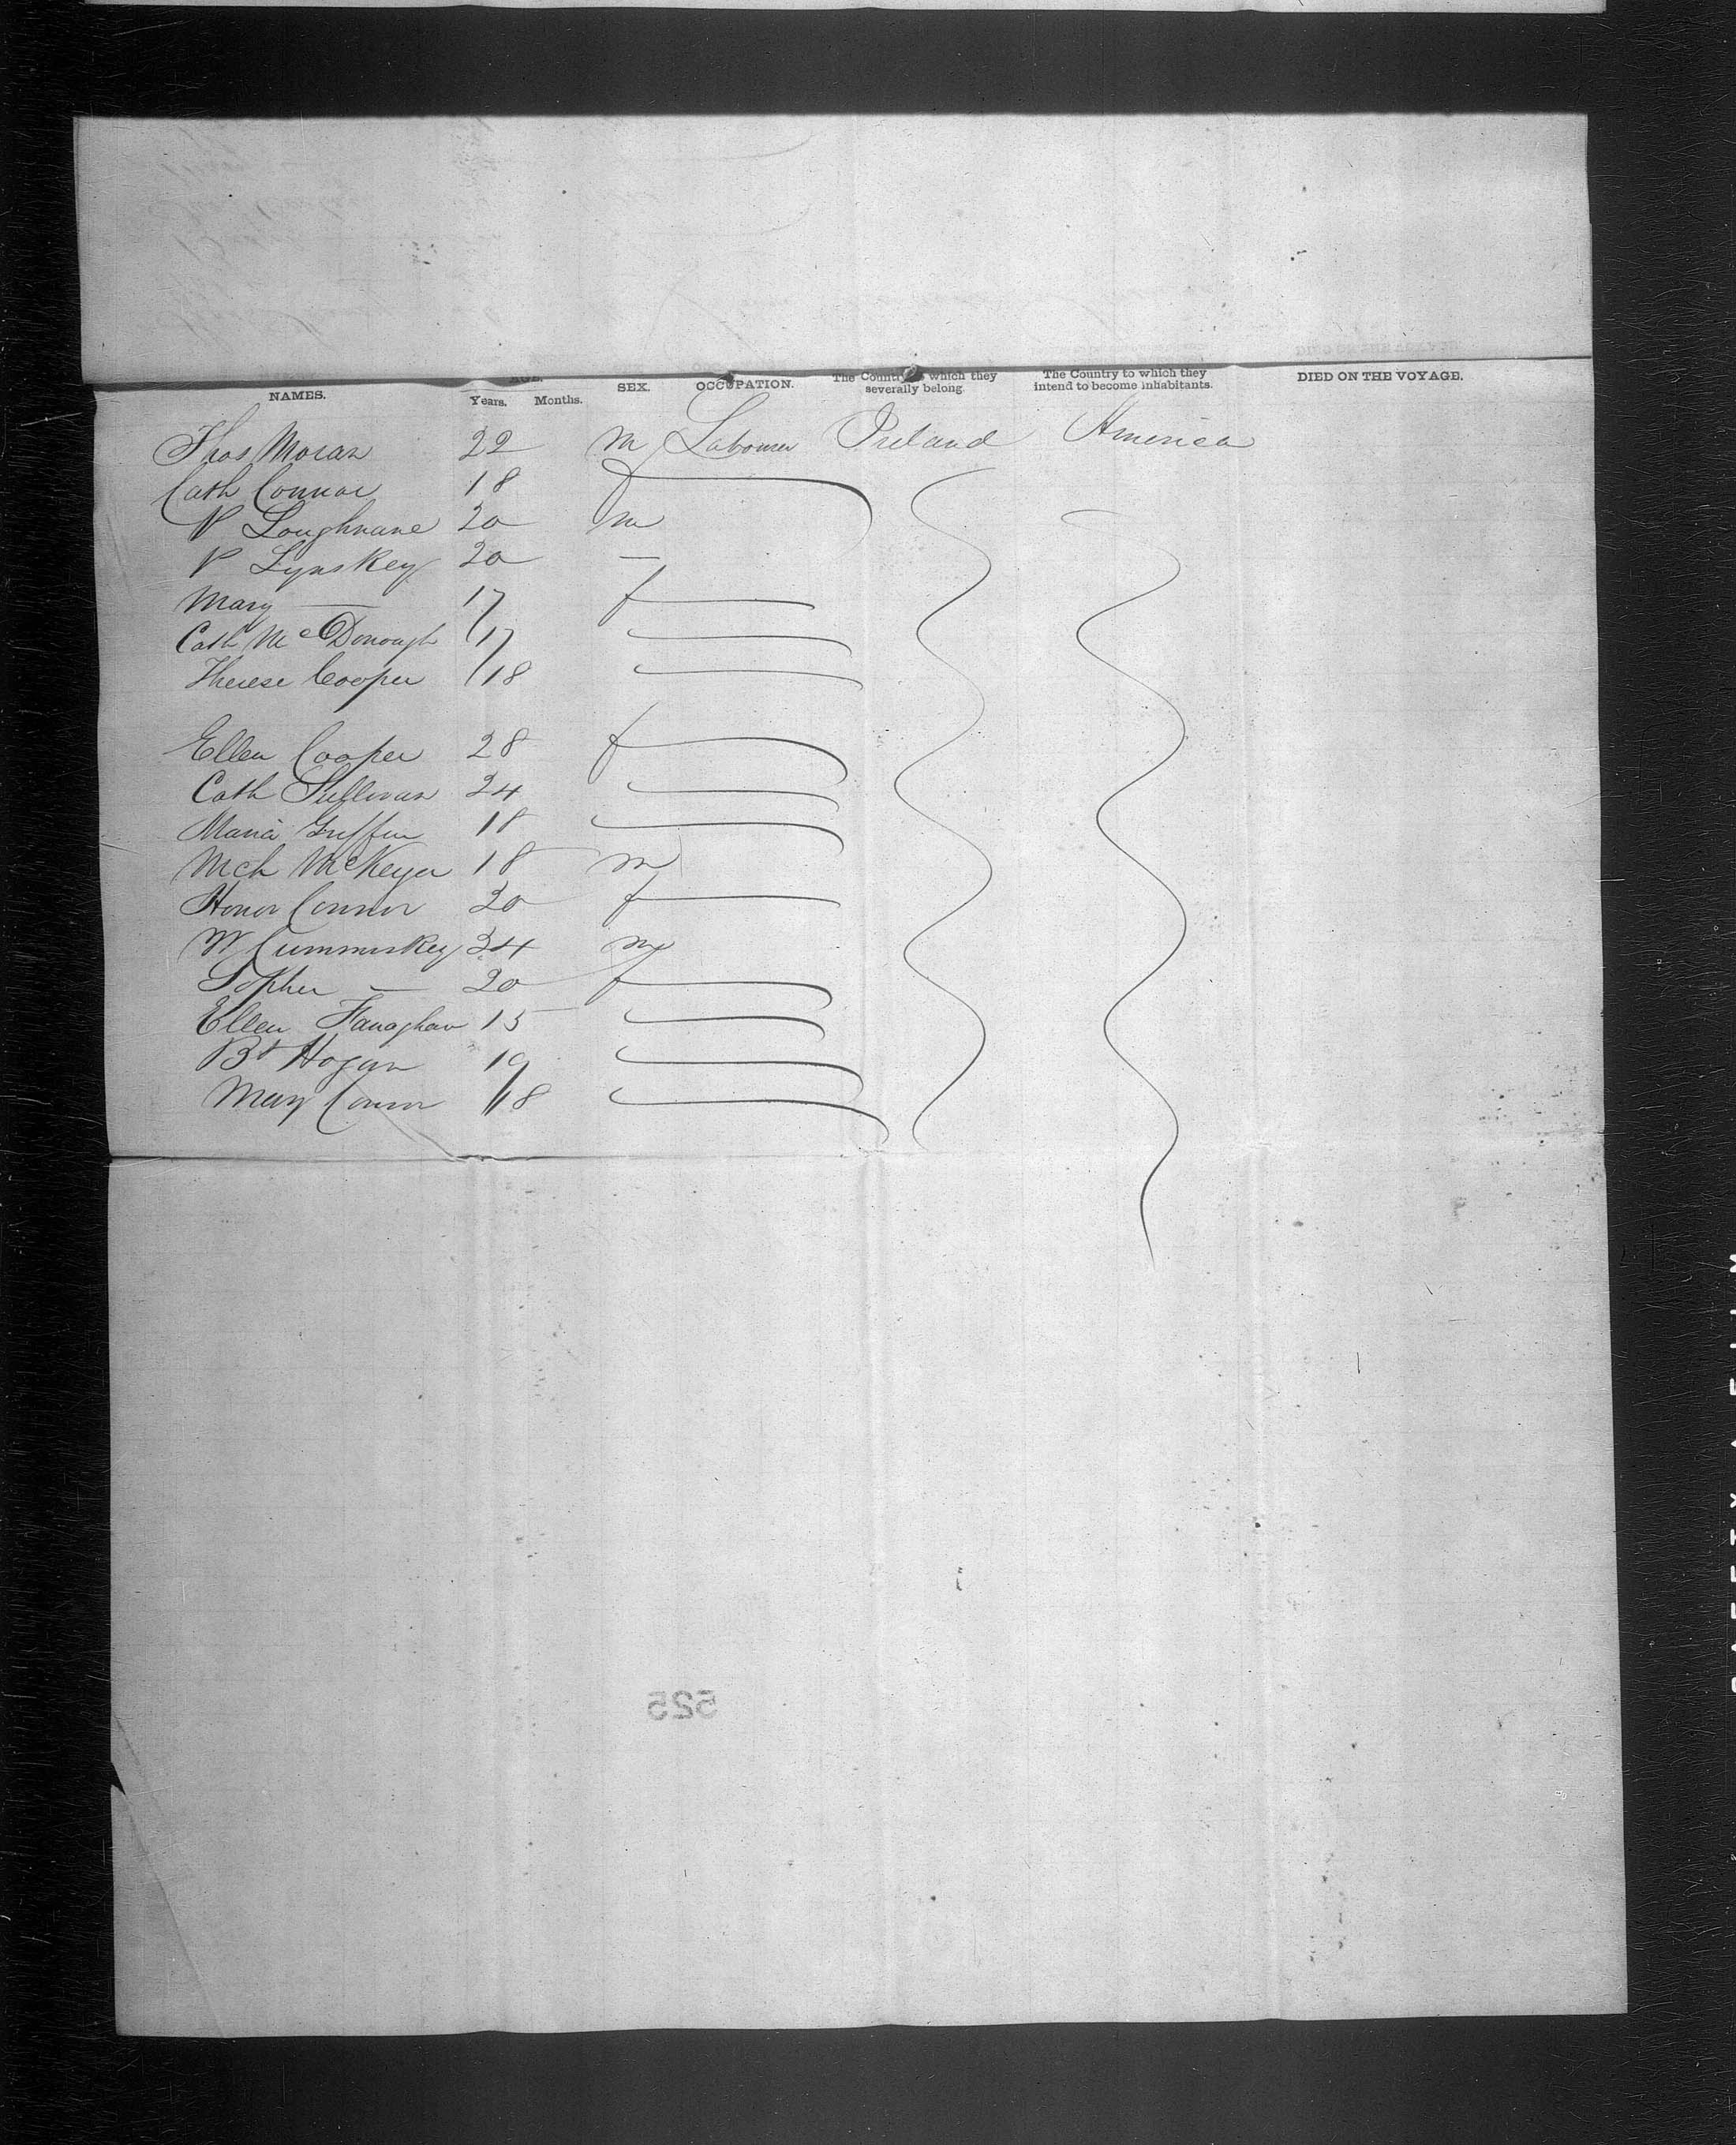 NAMES. AGE. Years. Months. SEX. OCCUPATION. The Country to which they severally belong. The Country to which they intend to become inhabitants. DIED ON THE VOYAGE.
Thos Moran 22 m Labourer Ireland America
Cath Connor 18 f
P Loughnane 20 m
P Lynskey 20 —
Mary — 17 f
Cath McDonough 17
Therese Cooper 18
Ellen Cooper 28 f
Cath Sullivan 24
Maria Griffin 18
Mich 18 m
Honor Connor 20 f
W Cummiskey 24 m
Sopher — 20 f
Ellen Fanaghan 15
Bt Hogan 19
Mary Connor 18
525